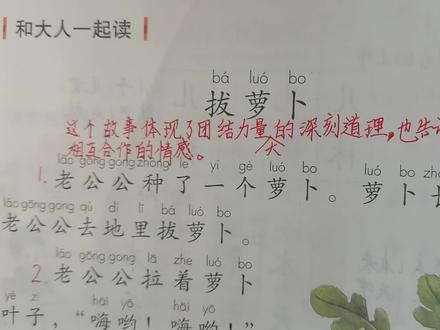 和大人一起读
bá luó bo
拔萝卜
这个故事体现了团结力量大的深刻道理,也告
相互合作的情感。
lǎo gōng gong zhòng le yí gè luó bo
1. 老公公种了一个萝卜。萝卜长
lǎo gōng gong qù dì lǐ bá luó bo
老公公去地里拔萝卜。
lǎo gōng gong lā zhe luó bo
2. 老公公拉着萝卜
yè zi hāi yō hāi yō
叶子,“嗨哟!嗨哟!”